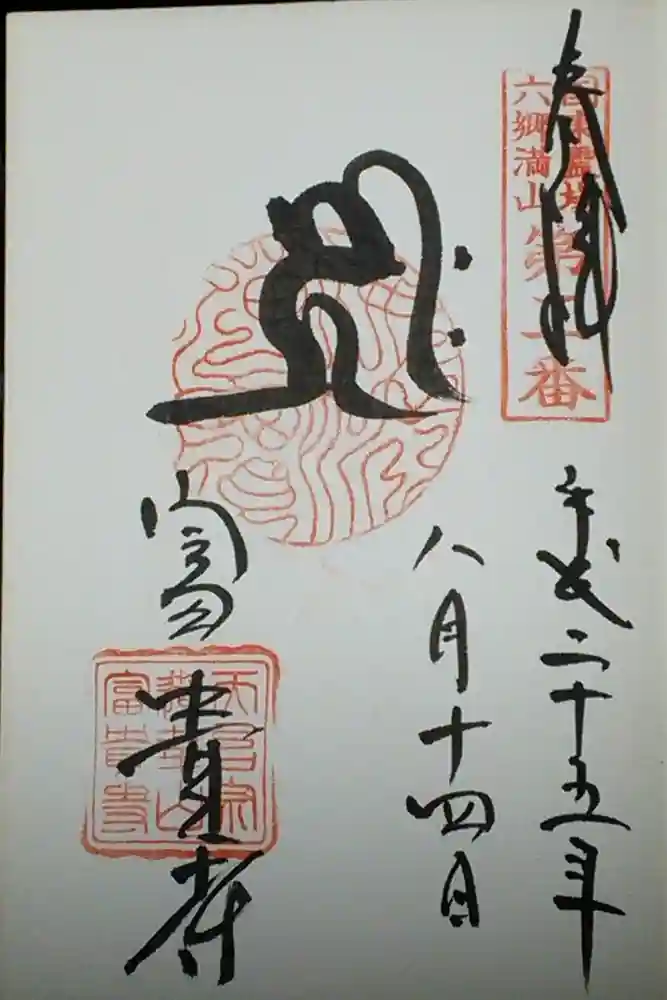 奉拝
國東霊場
六郷満山
第二番
平成二十五年
八月十四日
富貴寺
天台宗
蓮華山
富貴寺